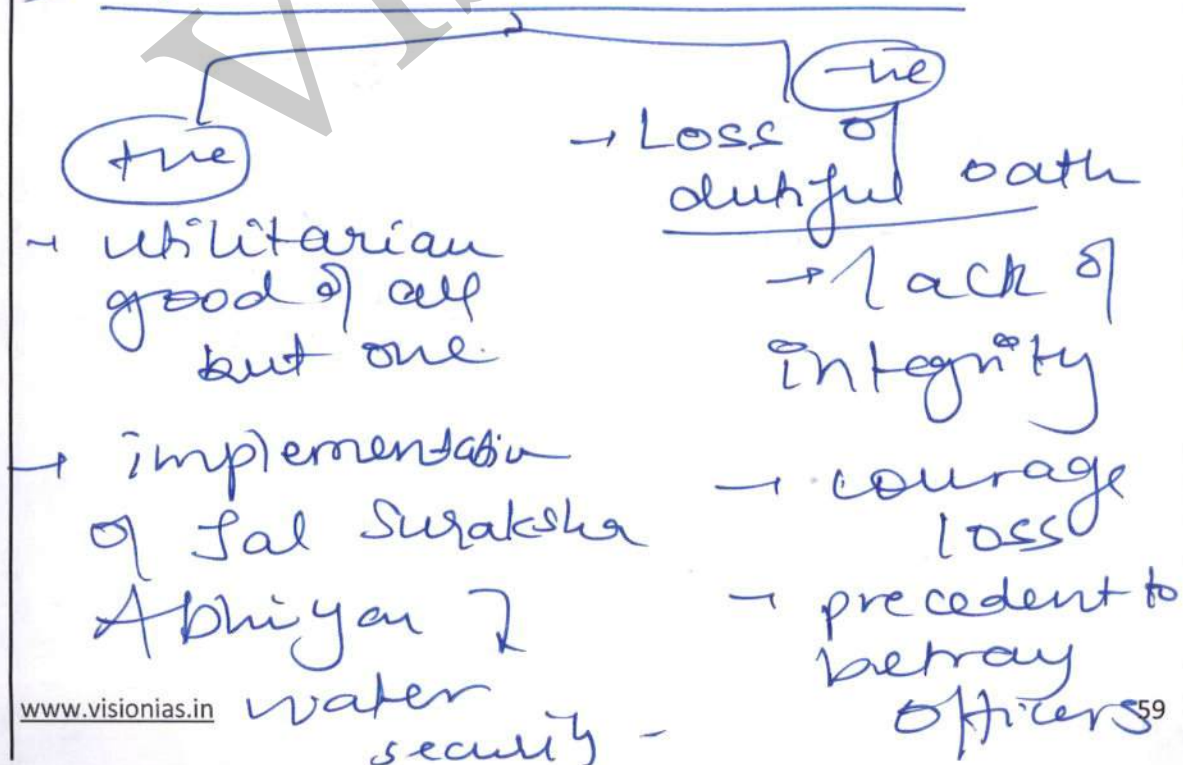 +ve
→ utilitarian
good of all
but one.
→ implementation
of Jal Suraksha
Abhiyan &
water
security -
-ve
→ Loss of
dutiful oath
→ lack of
integrity
→ courage
loss
→ precedent to
betray
officers
www.visionias.in
59